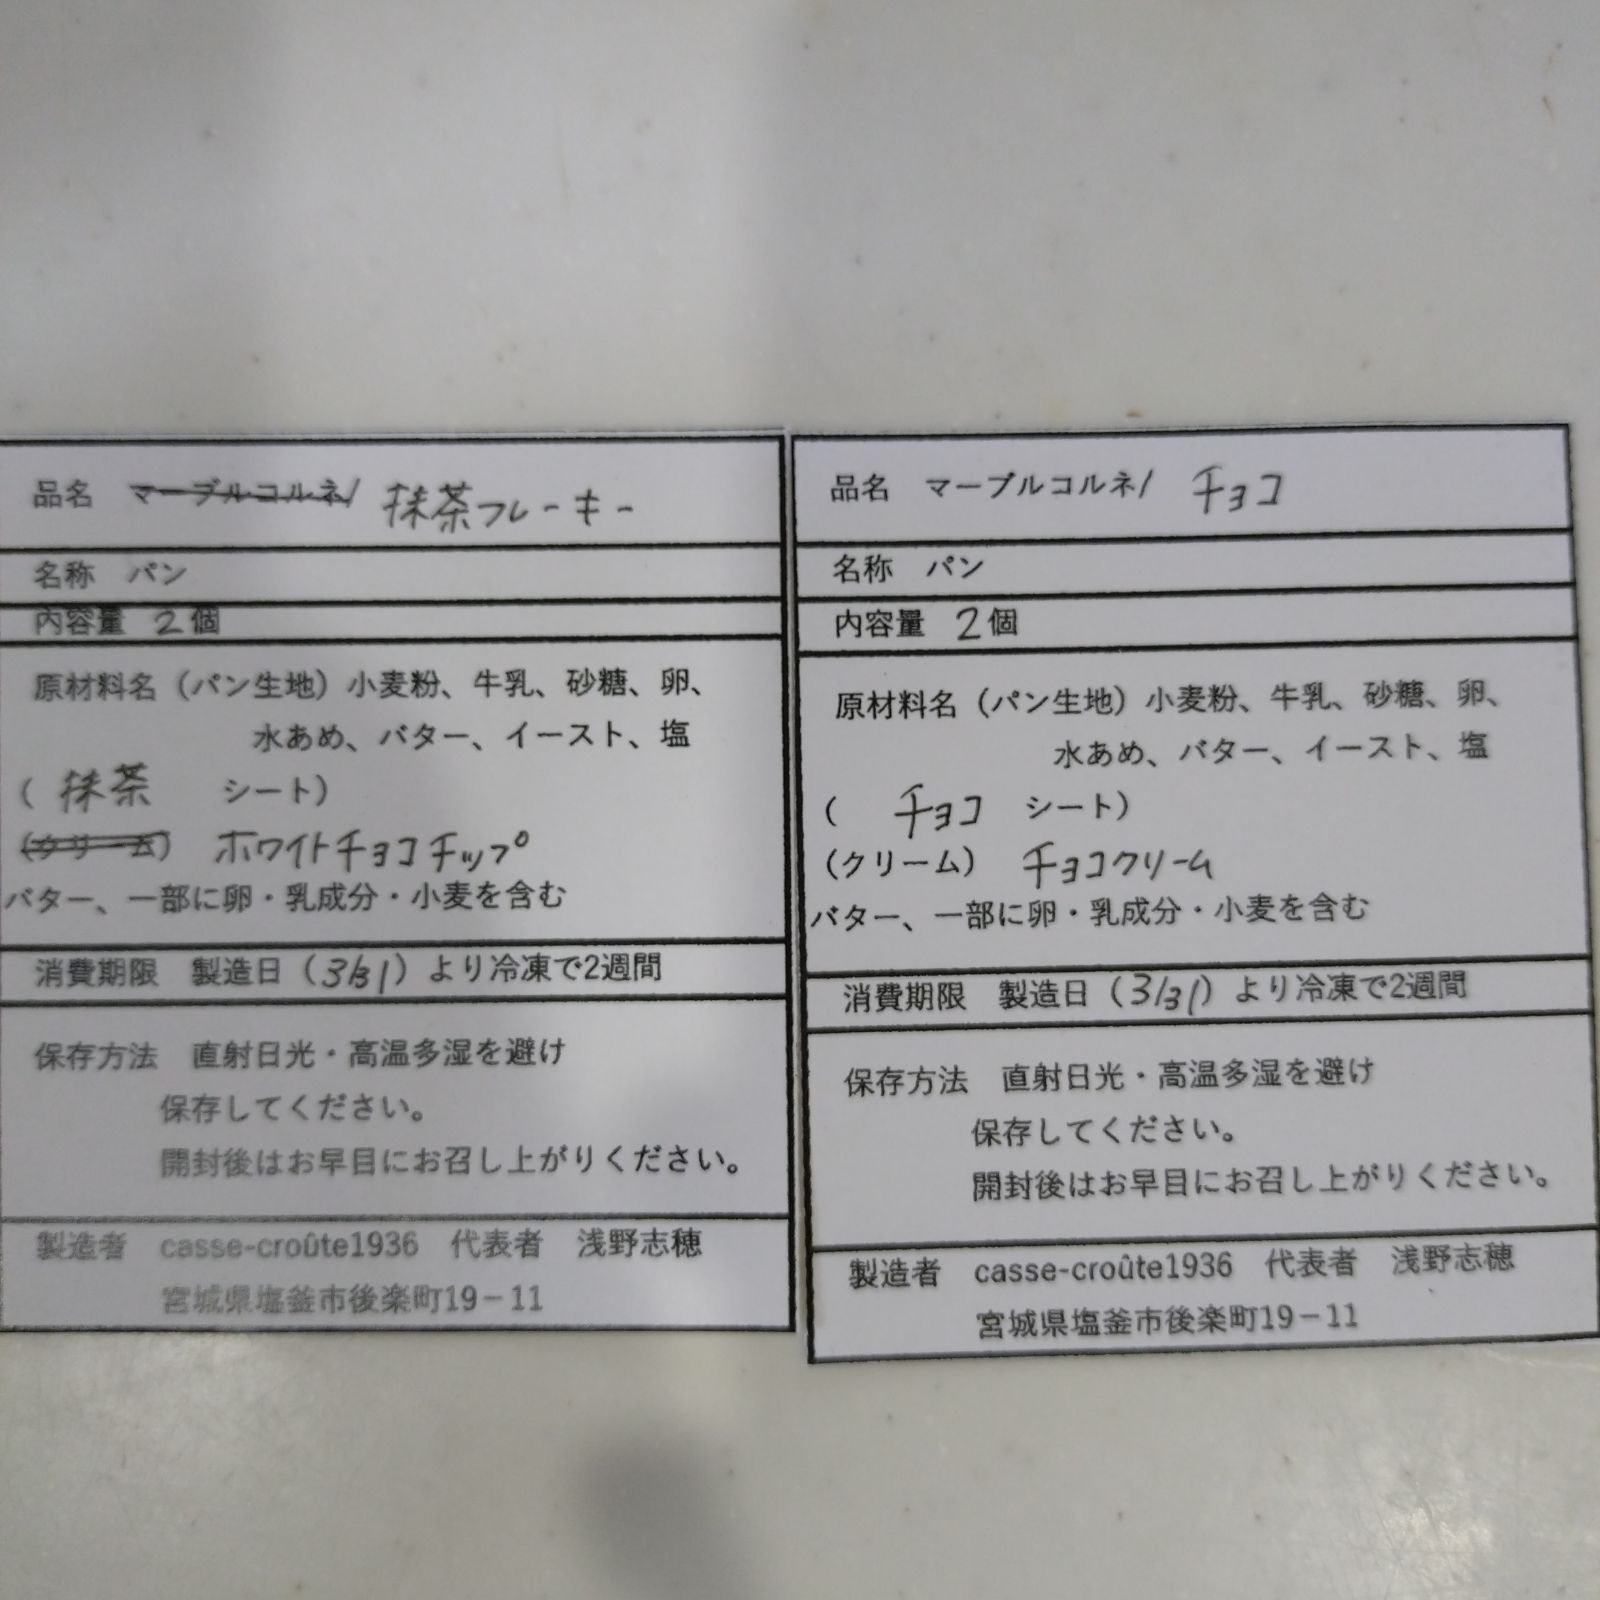 品名 マーブルコルネ/ 抹茶フレーキー
名称 パン
内容量 2個
原材料名（パン生地）小麦粉、牛乳、砂糖、卵、
水あめ、バター、イースト、塩
（ 抹茶 シート）
（クリーム） ホワイトチョコチップ
バター、一部に卵・乳成分・小麦を含む
消費期限 製造日（3/31）より冷凍で2週間
保存方法 直射日光・高温多湿を避け
保存してください。
開封後はお早目にお召し上がりください。
製造者 casse-croûte1936 代表者 浅野志穂
宮城県塩釜市後楽町19－11
品名 マーブルコルネ/ チョコ
名称 パン
内容量 2個
原材料名（パン生地）小麦粉、牛乳、砂糖、卵、
水あめ、バター、イースト、塩
（ チョコ シート）
（クリーム） チョコクリーム
バター、一部に卵・乳成分・小麦を含む
消費期限 製造日（3/31）より冷凍で2週間
保存方法 直射日光・高温多湿を避け
保存してください。
開封後はお早目にお召し上がりください。
製造者 casse-croûte1936 代表者 浅野志穂
宮城県塩釜市後楽町19－11